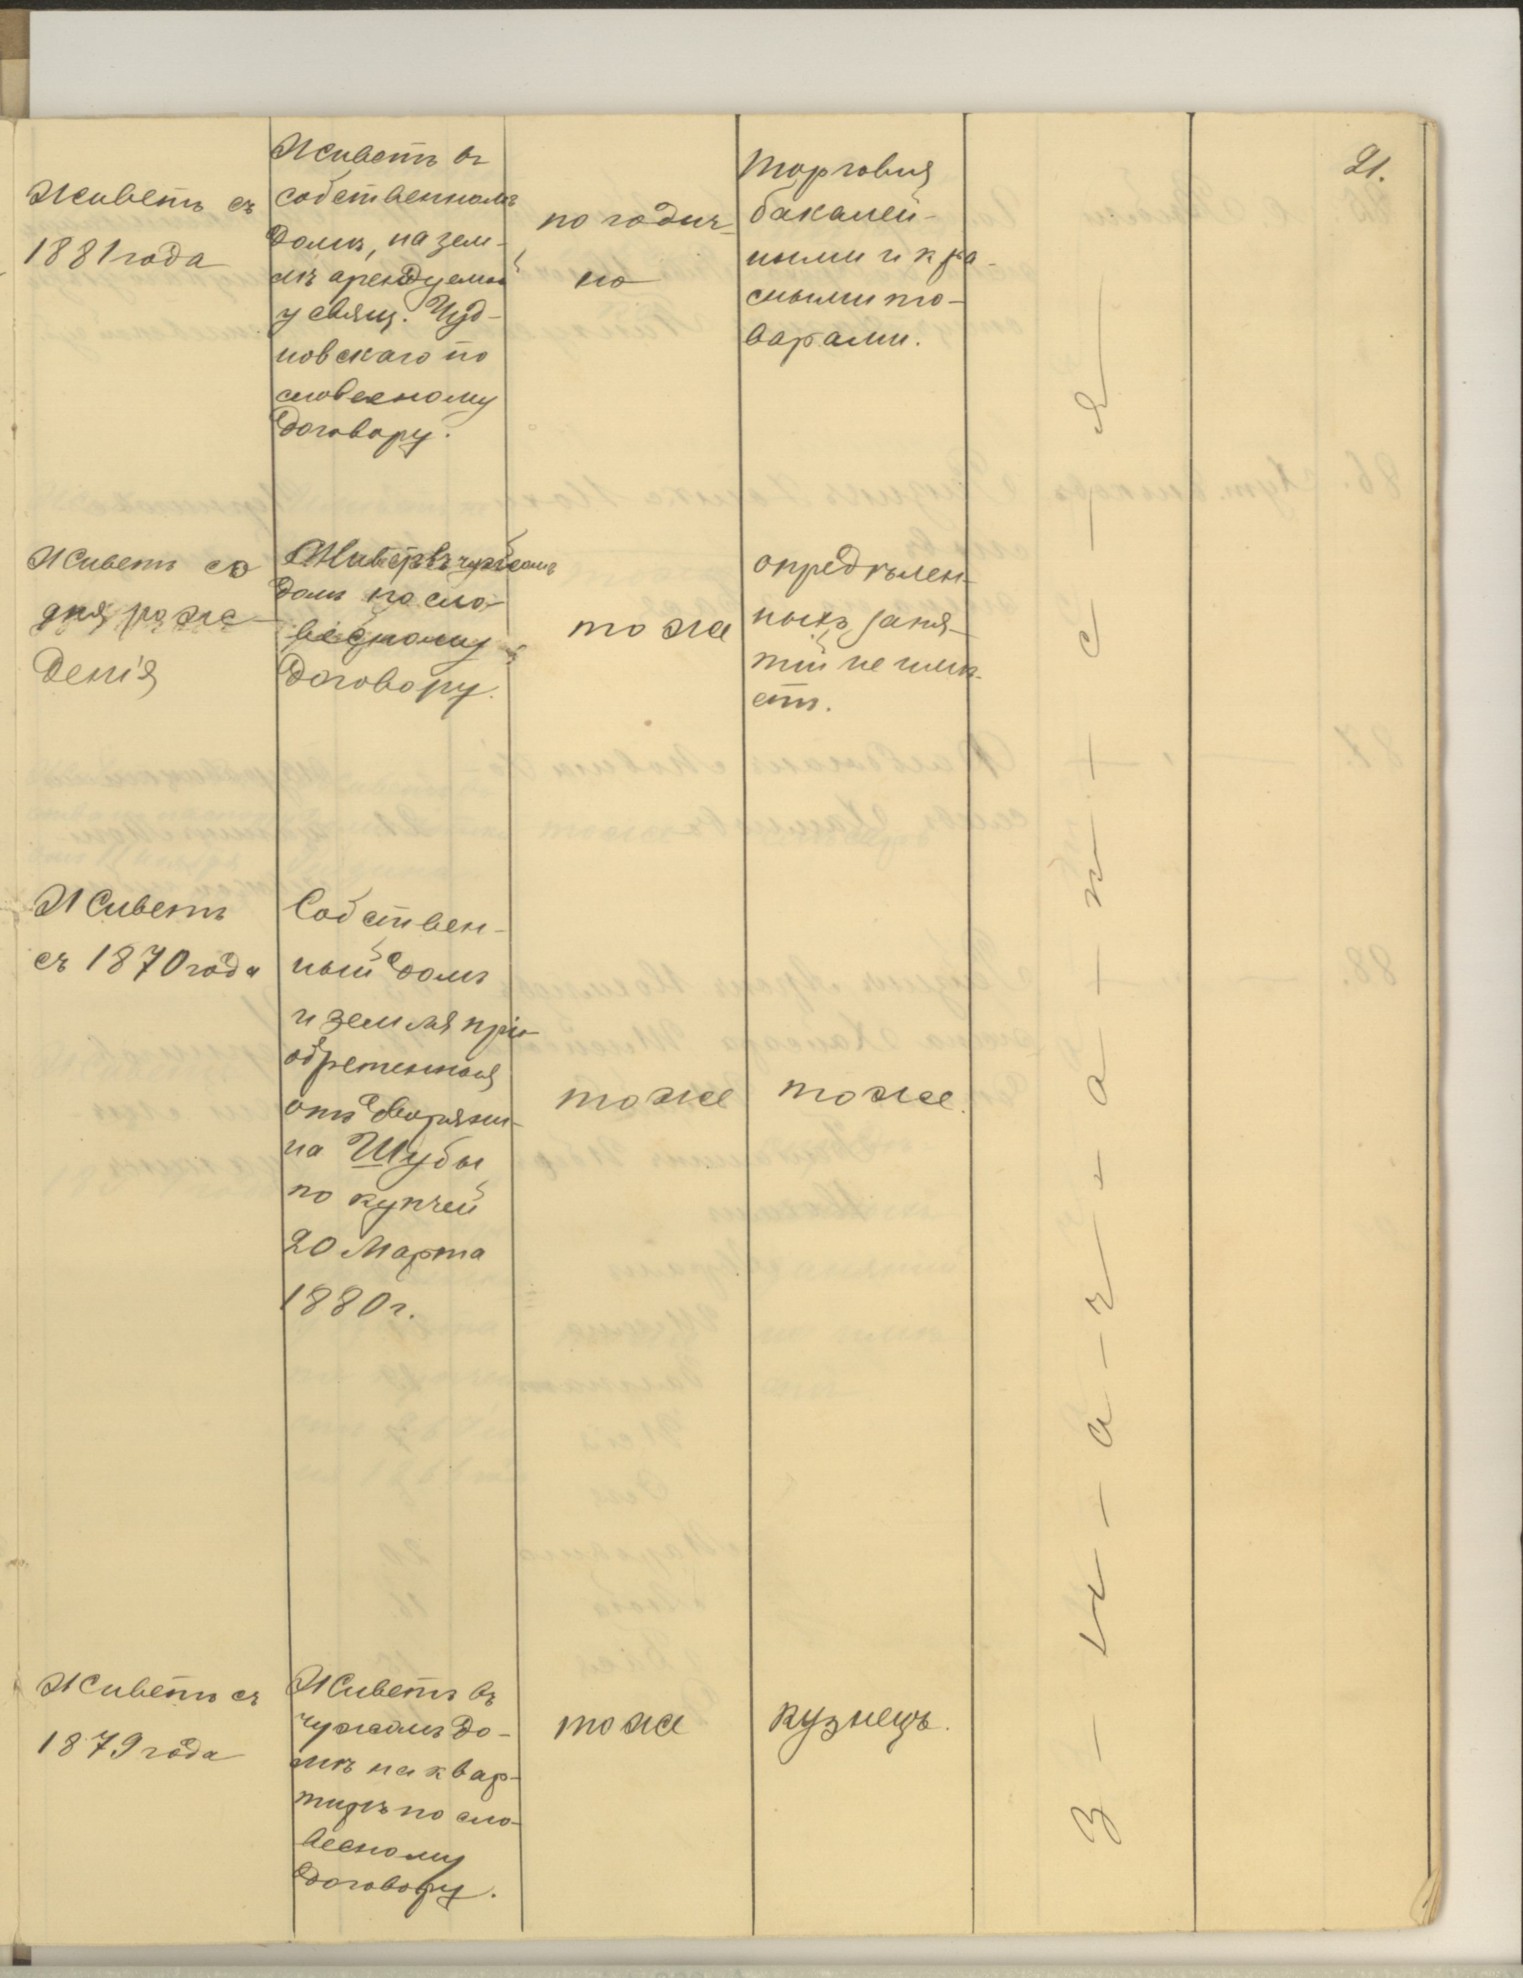 21.
Живетъ съ
1881 года
Живетъ въ
собственномъ
домѣ, на зем-
лѣ арендуемой
у свящ. Чуд-
новскаго по
словесному
договору.
погодич-
но
торговля
бакалей-
ными и кра-
сными то-
варами.
Живетъ со
дня рож-
денія
Живетъ въ чужомъ
домѣ по сло-
весному
договору.
тоже
опредѣлен-
ныхъ заня-
тій не имѣ-
етъ.
Живетъ
съ 1870 года
Собствен-
ный домъ
и земля прі-
обретенная
отъ дворяни-
на Шубы
по купчей
20 Марта
1880 г.
тоже
тоже.
Живетъ съ
1879 года
Живетъ въ
чужомъ до-
мѣ на квар-
тирѣ по сло-
весному
договору.
тоже
кузнецъ.